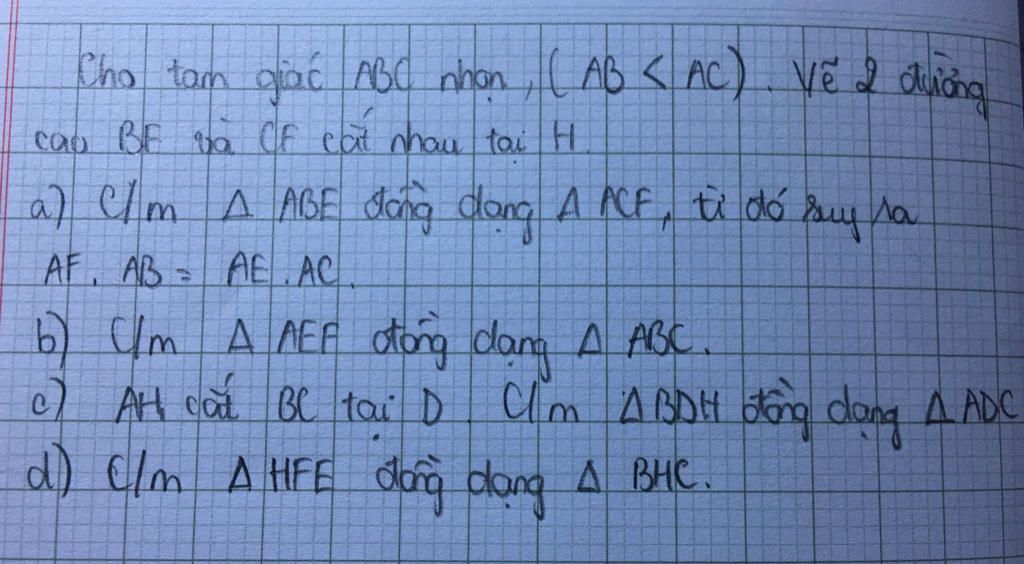 Cho tam giác ABC nhọn, (AB < AC). Vẽ 2 đường
cao BE và CF cắt nhau tại H.
a) C/m Δ ABE đồng dạng Δ ACF, từ đó suy ra
AF. AB = AE. AC.
b) C/m Δ AEF đồng dạng Δ ABC.
c) AH cắt BC tại D. C/m ΔBDH đồng dạng Δ ADC
d) C/m Δ HFE đồng dạng Δ BHC.